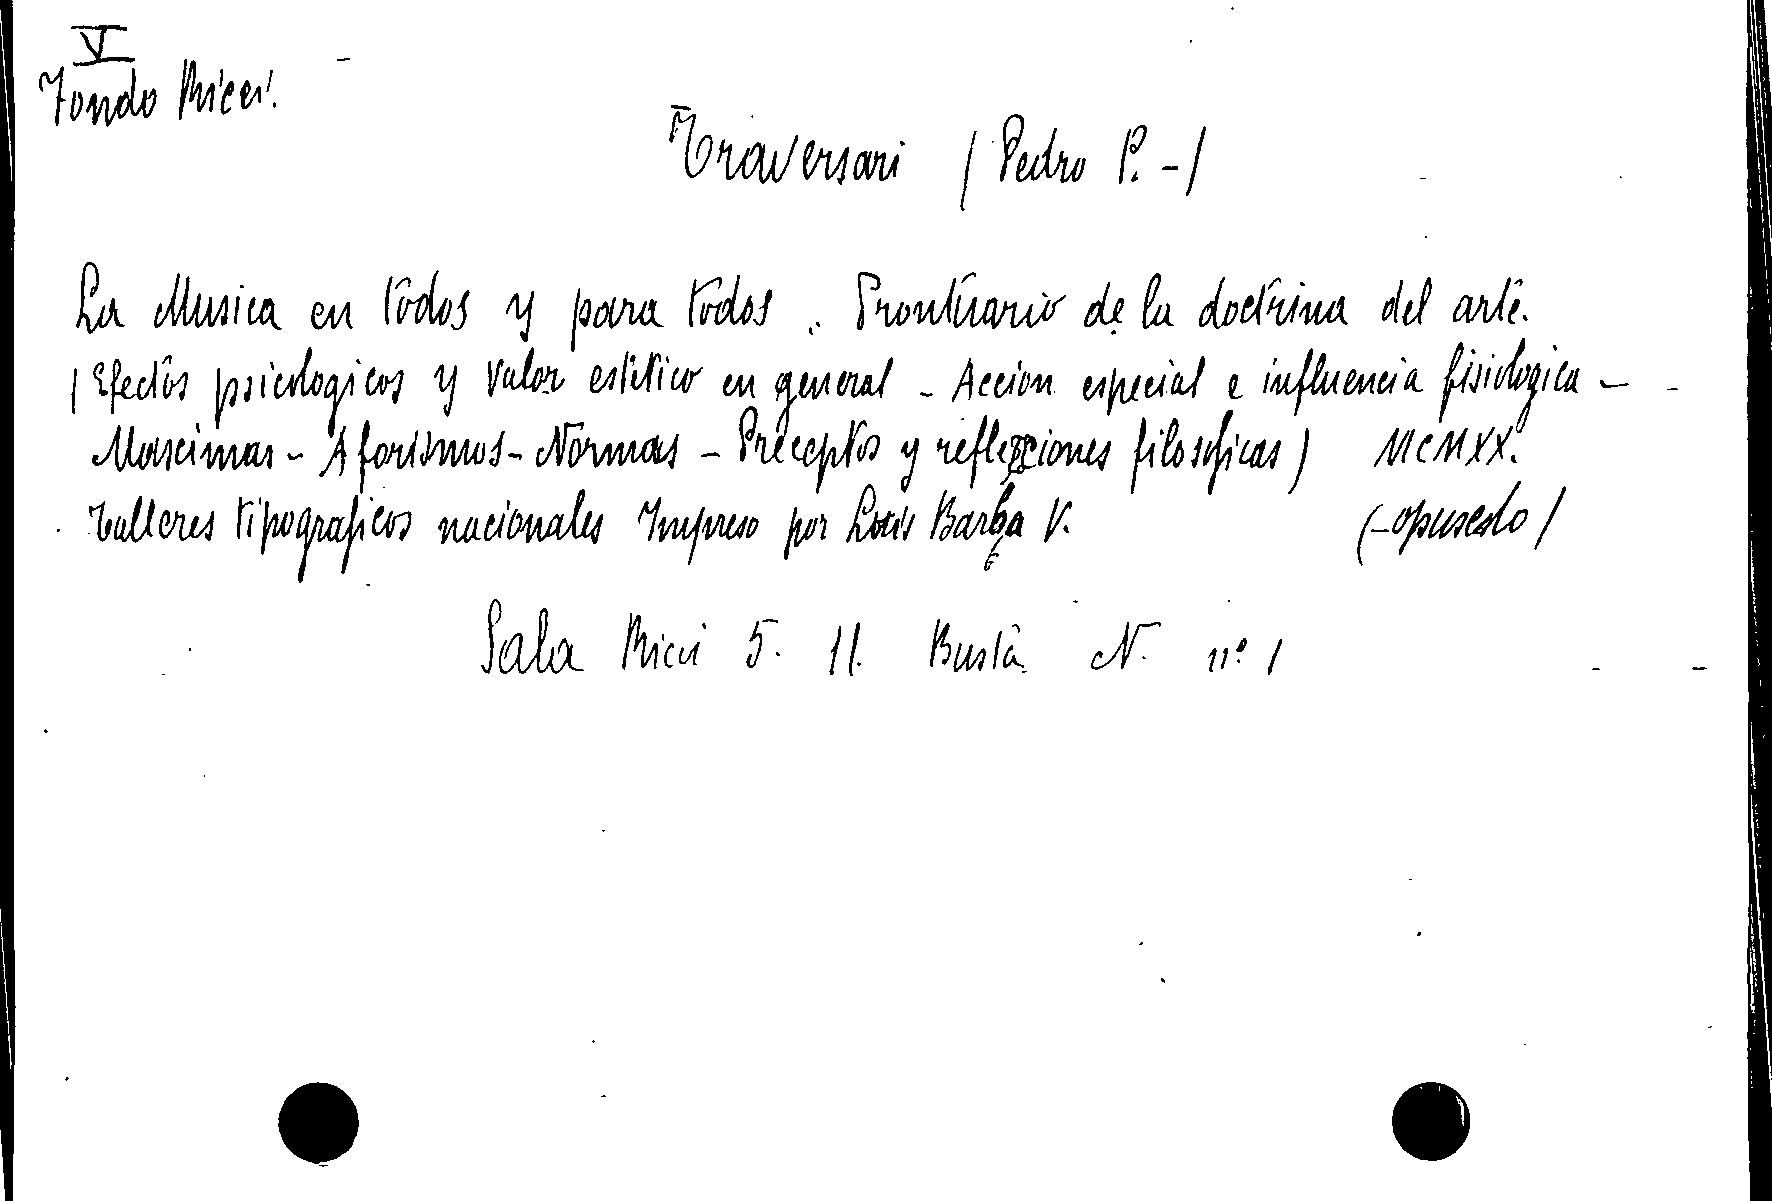 V
Fondo Ricci.
Traversari (Pedro P. -)
La Musica en todos y para todos .. Prontuario de la doctrina del arte.
(Efectos psicologicos y valor estetico en general - Accion especial e influencia fisiologica -
Mascimas - Aforismos - Normas - Preceptos y reflexciones filosoficas) MCMXX.
Talleres tipograficos nacionales Impreso por Louis Barba V. (-opuscolo)
Sala Ricci 5. 11. Busta N. nº 1